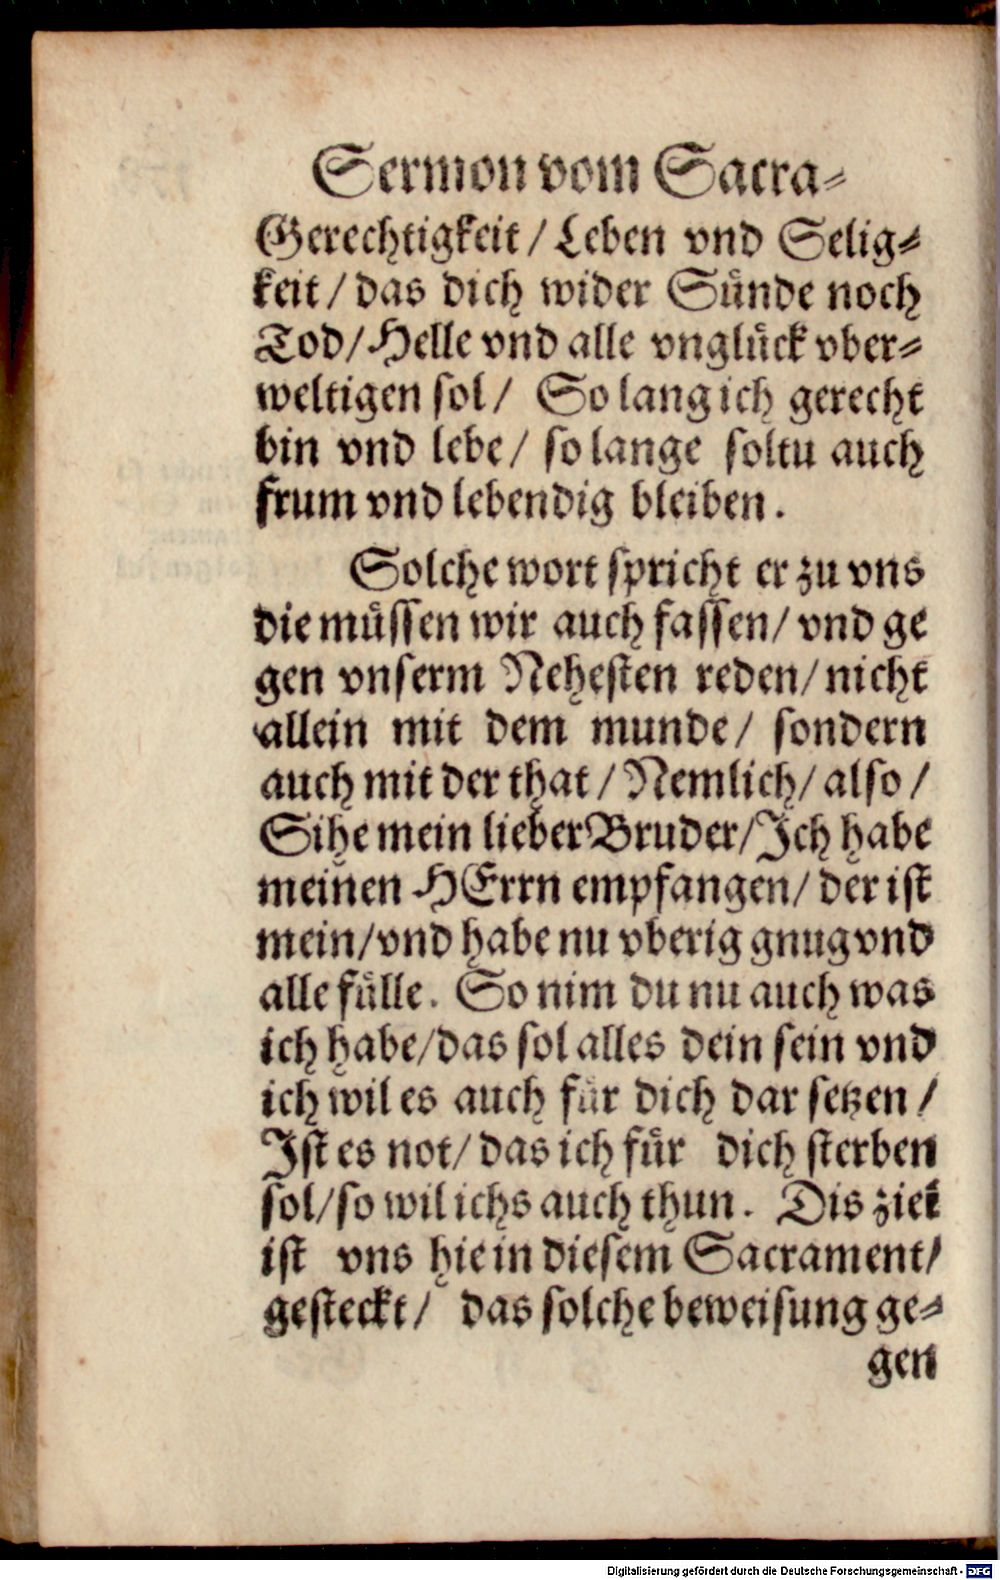 Sermon vom Sacra⸗
Gerechtigkeit / Leben vnd Selig⸗
keit / das dich wider Sünde noch
Tod / Helle vnd alle vnglück vber⸗
weltigen sol / So lang ich gerecht
bin vnd lebe / so lange soltu auch
frum vnd lebendig bleiben.
Solche wort spricht er zu vns
die müssen wir auch fassen / vnd ge
gen vnserm Nehesten reden / nicht
allein mit dem munde / sondern
auch mit der that / Nemlich / also /
Sihe mein lieber Bruder / Ich habe
meinen HErrn empfangen / der ist
mein / vnd habe nu vberig gnug vnd
alle fülle. So nim du nu auch was
ich habe / das sol alles dein sein vnd
ich wil es auch für dich dar setzen /
Ist es not / das ich für dich sterben
sol / so wil ichs auch thun. Dis ziel
ist vns hie in diesem Sacrament /
gesteckt / das solche beweisung ge⸗
gen
Digitalisierung gefördert durch die Deutsche Forschungsgemeinschaft - DFG